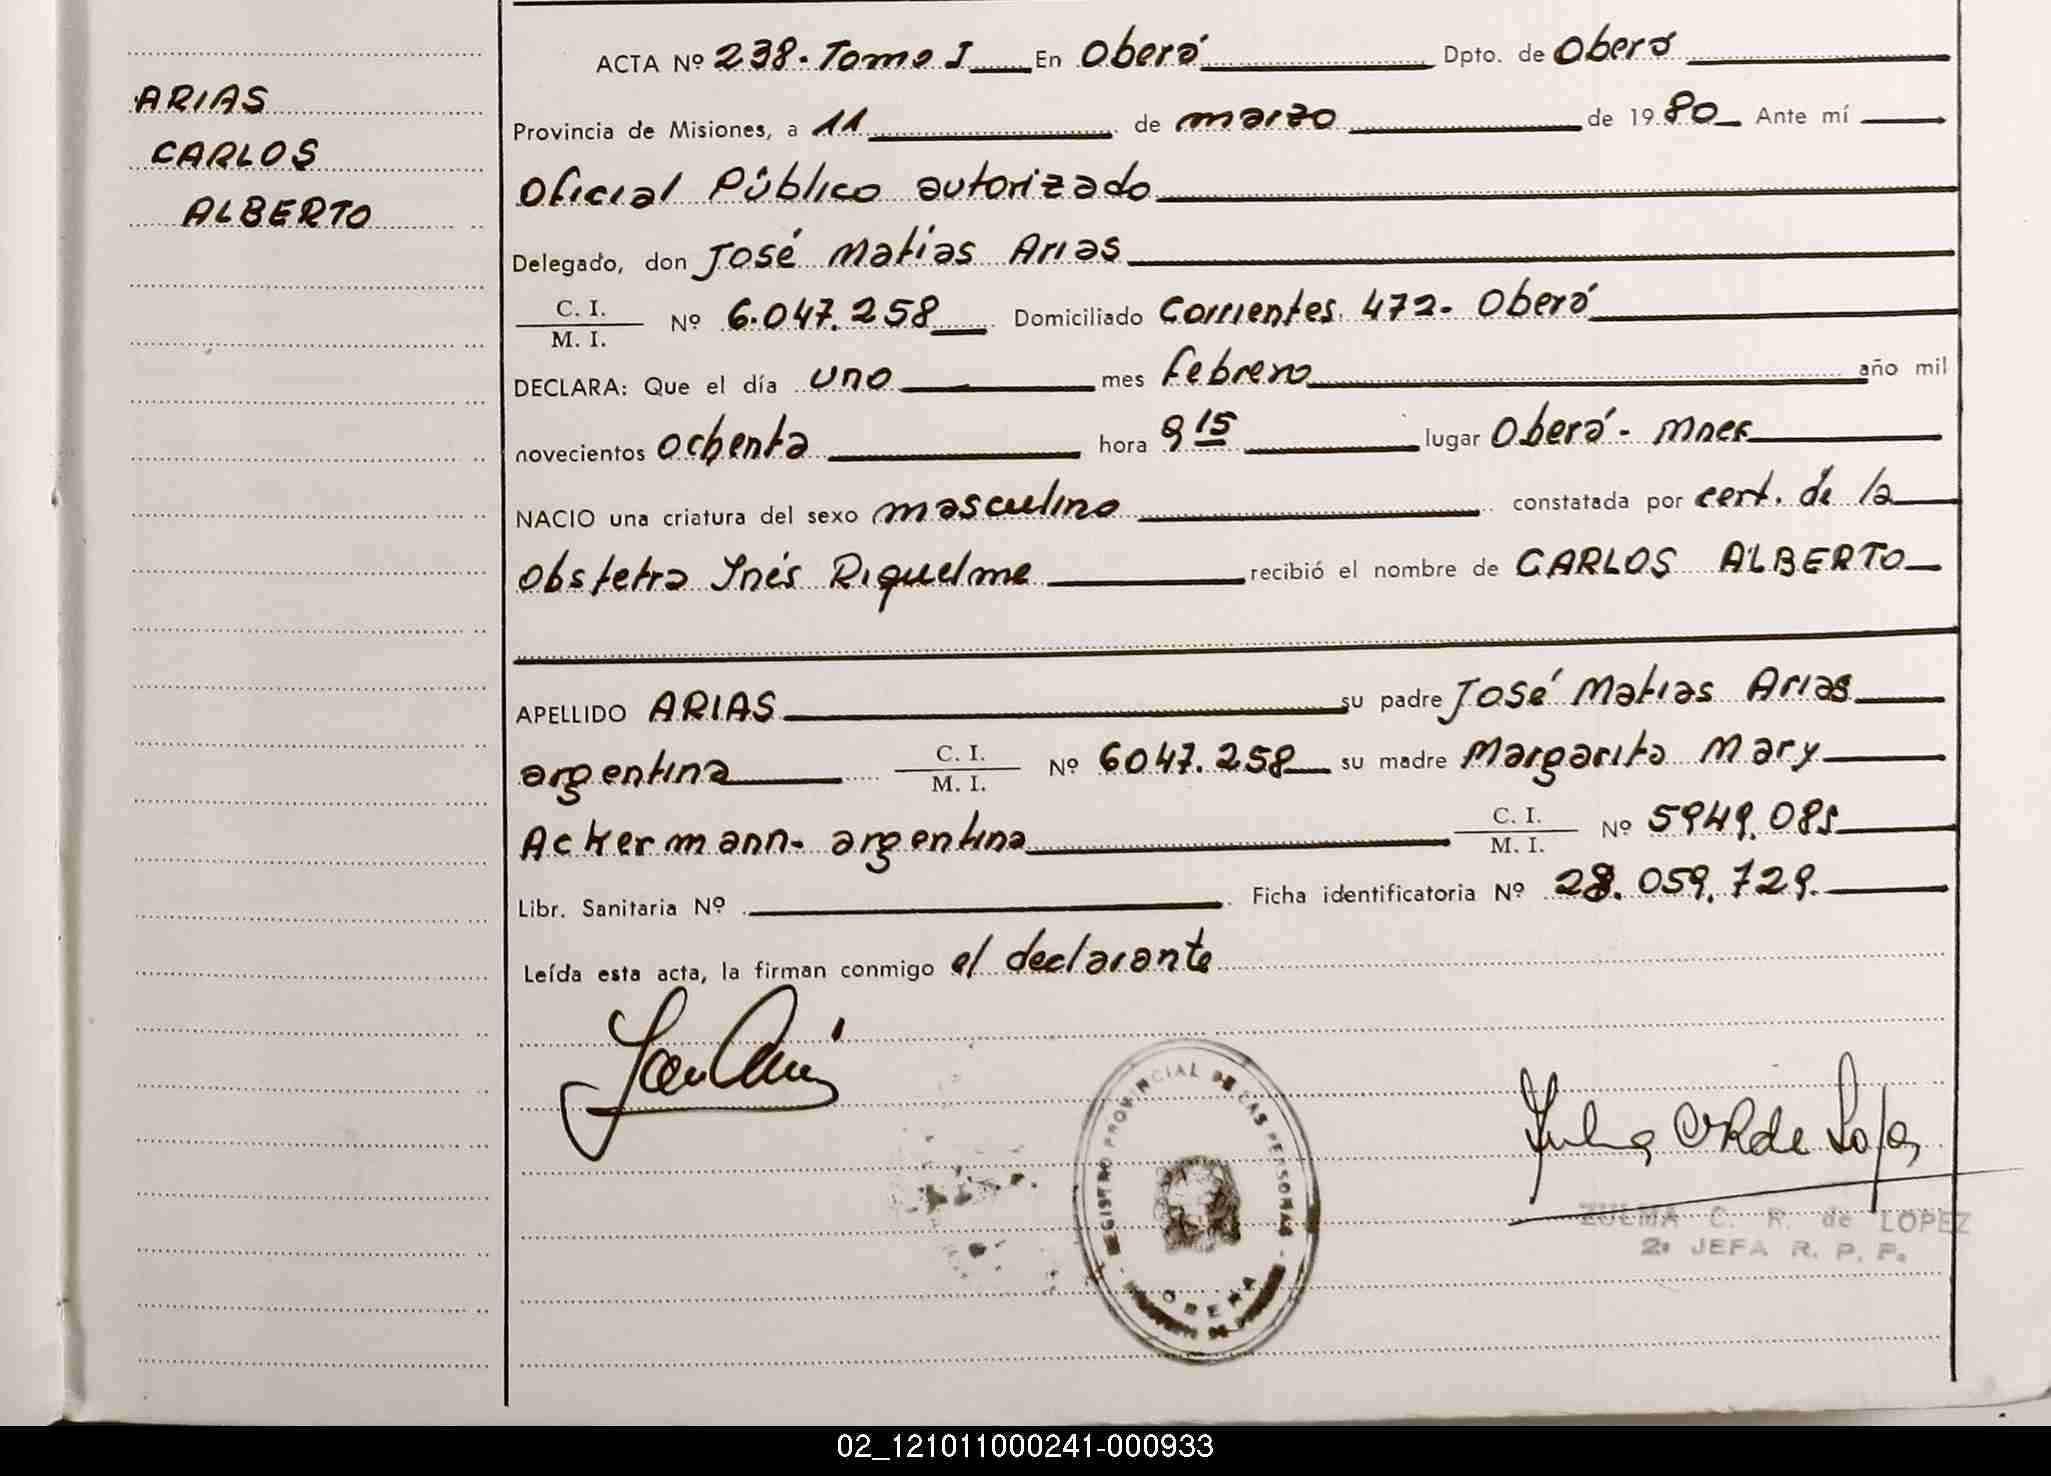 ARIAS
CARLOS
ALBERTO
ACTA Nº 238. Tomo I En Oberá Dpto. de Oberá
Provincia de Misiones, a 11 de marzo de 1980 Ante mí
Oficial Público autorizado
Delegado, don José Matías Arias
C. I.
M. I.
Nº 6.047.258 Domiciliado Corrientes 472- Oberá
DECLARA: Que el día uno mes febrero año mil
novecientos ochenta hora 9 15 lugar Oberá- Mnes
NACIO una criatura del sexo masculino constatada por cert. de la
Obstetra Inés Riquelme recibió el nombre de CARLOS ALBERTO
APELLIDO ARIAS su padre José Matias Arias
argentina C. I. M. I. Nº 6047.258 su madre Margarita Mary
Ackermann- argentina C. I. M. I. Nº 5949.085
Libr. Sanitaria Nº Ficha identificatoria Nº 28.059.729.
Leída esta acta, la firman conmigo el declarante
REGISTRO PROVINCIAL DE LAS PERSONAS
OBERA
ZULMA C. R. de LOPEZ
2ª JEFA R. P. P.
02_121011000241-000933